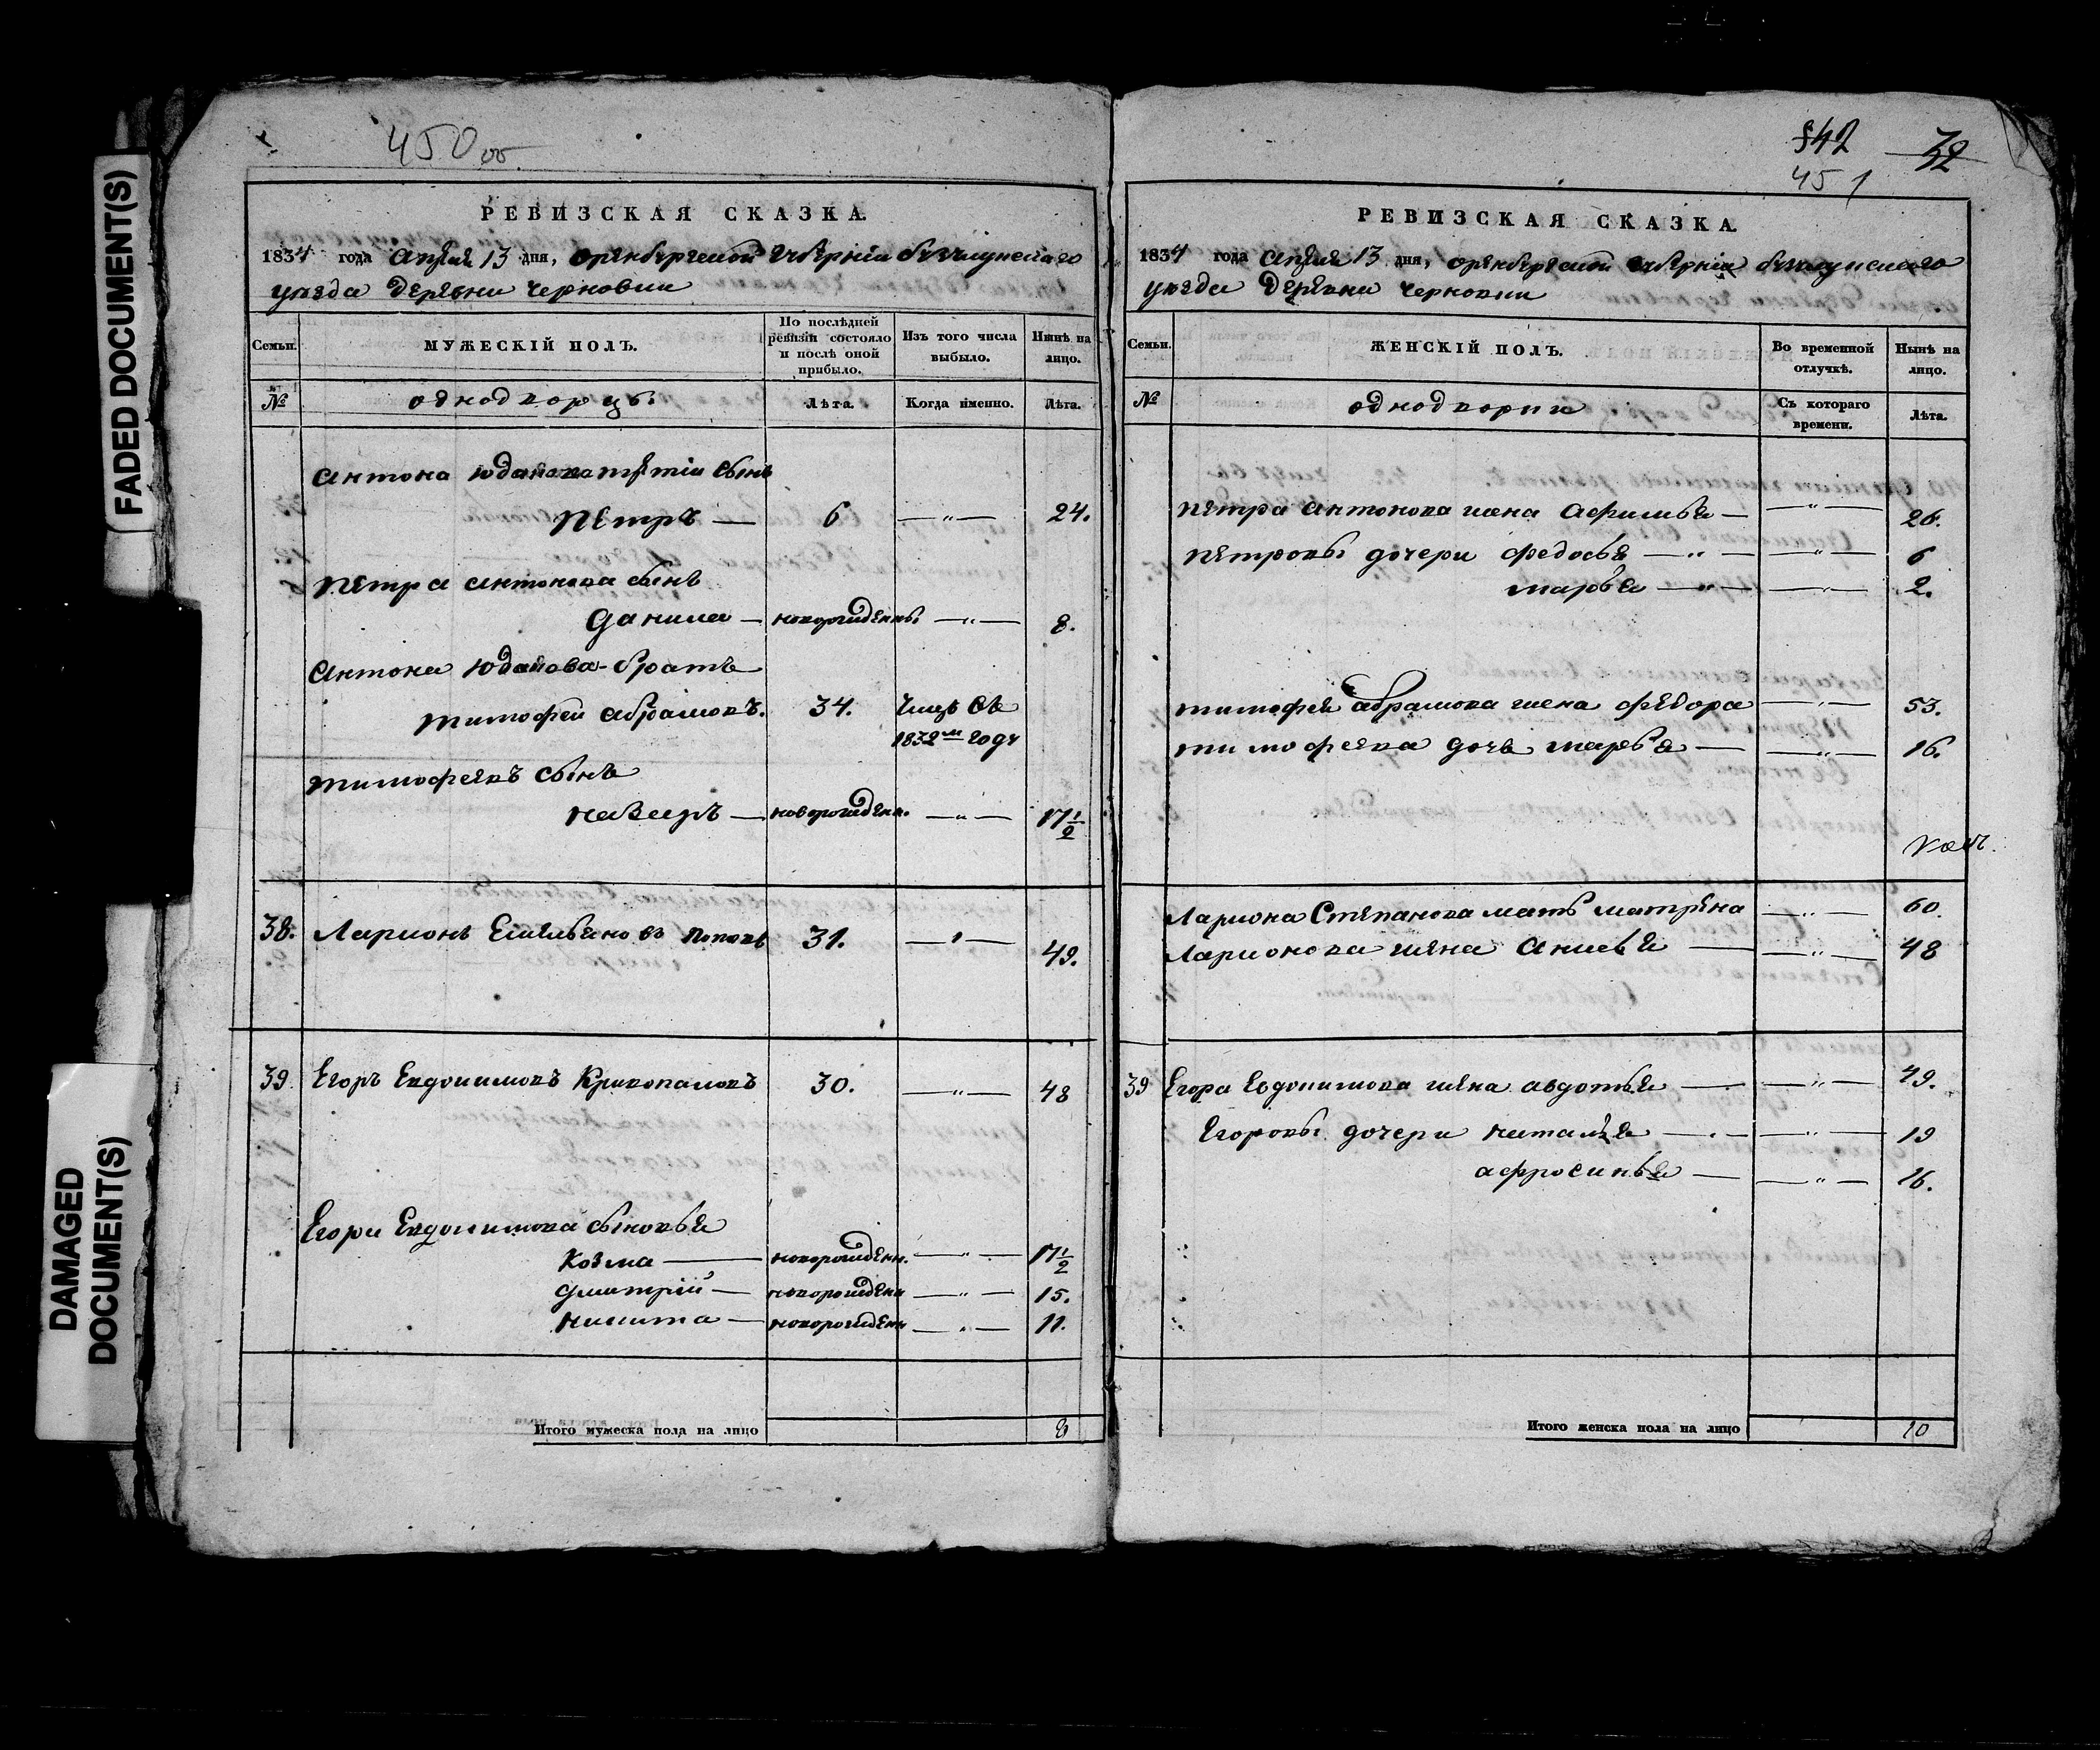 FADED DOCUMENT(S)
DAMAGED
DOCUMENT(S)
450 об
РЕВИЗСКАЯ СКАЗКА.
1834 года Апреля 13 дня, оренбургской губернiи бузулукскаго
уезда деревни черновки
Семьи.
МУЖЕСКІЙ ПОЛЪ.
По послѣдней
ревизіи состояло
и послѣ оной
прибыло.
Изъ того числа
выбыло.
Нынѣ на
лицо.
№
однодворцы.
Лѣта.
Когда именно.
Лѣта.
Антона Юдакова третiи сынъ
Петръ — 6 —"— 24.
Петра антонова сынъ
Данила — новорожденны —"— 8.
Антона Юдакова братъ
тимофеи абрамовъ. 34. 1832м году
тимофеявъ сынъ
назаръ — новорожден. —"— 17 1/2
38. Ларионъ Емельяновъ поповъ 31. —"— 49.
39 Егоръ Евдокимовъ Кривопаловъ 30. —"— 48
Егора Евдокимова сыновья
Козма — новорожден. —"— 17 1/2
дмитрiй — новорожден —"— 15.
никита — новорожден —"— 11.
Итого мужеска пола на лицо 8
542
451
32
РЕВИЗСКАЯ СКАЗКА.
1834 года Апреля 13 дня, оренбургской губернiи бузулукскаго
уезда деревни черновки
Семьи.
ЖЕНСКІЙ ПОЛЪ.
Во временной
отлучкѣ.
Нынѣ на
лицо.
№
однодворки
Съ котораго
времени.
Лѣта.
Петра антонова жена Афимья — —"— 26.
петровы дочери федосья —"— —"— 6
марья —"— —"— 2.
тимофея абрамова жена федора —"— 53.
тимофеява дочь марья — —"— 16.
Лариона Степанова мать матрена —"— 60.
Ларионова жена Анисья — —"— 48
39 Егора Евдокимова жена авдотья — —"— 49.
Егоровы дочери наталья — —"— 19
афросинья — —"— 16.
Итого женска пола на лицо 10